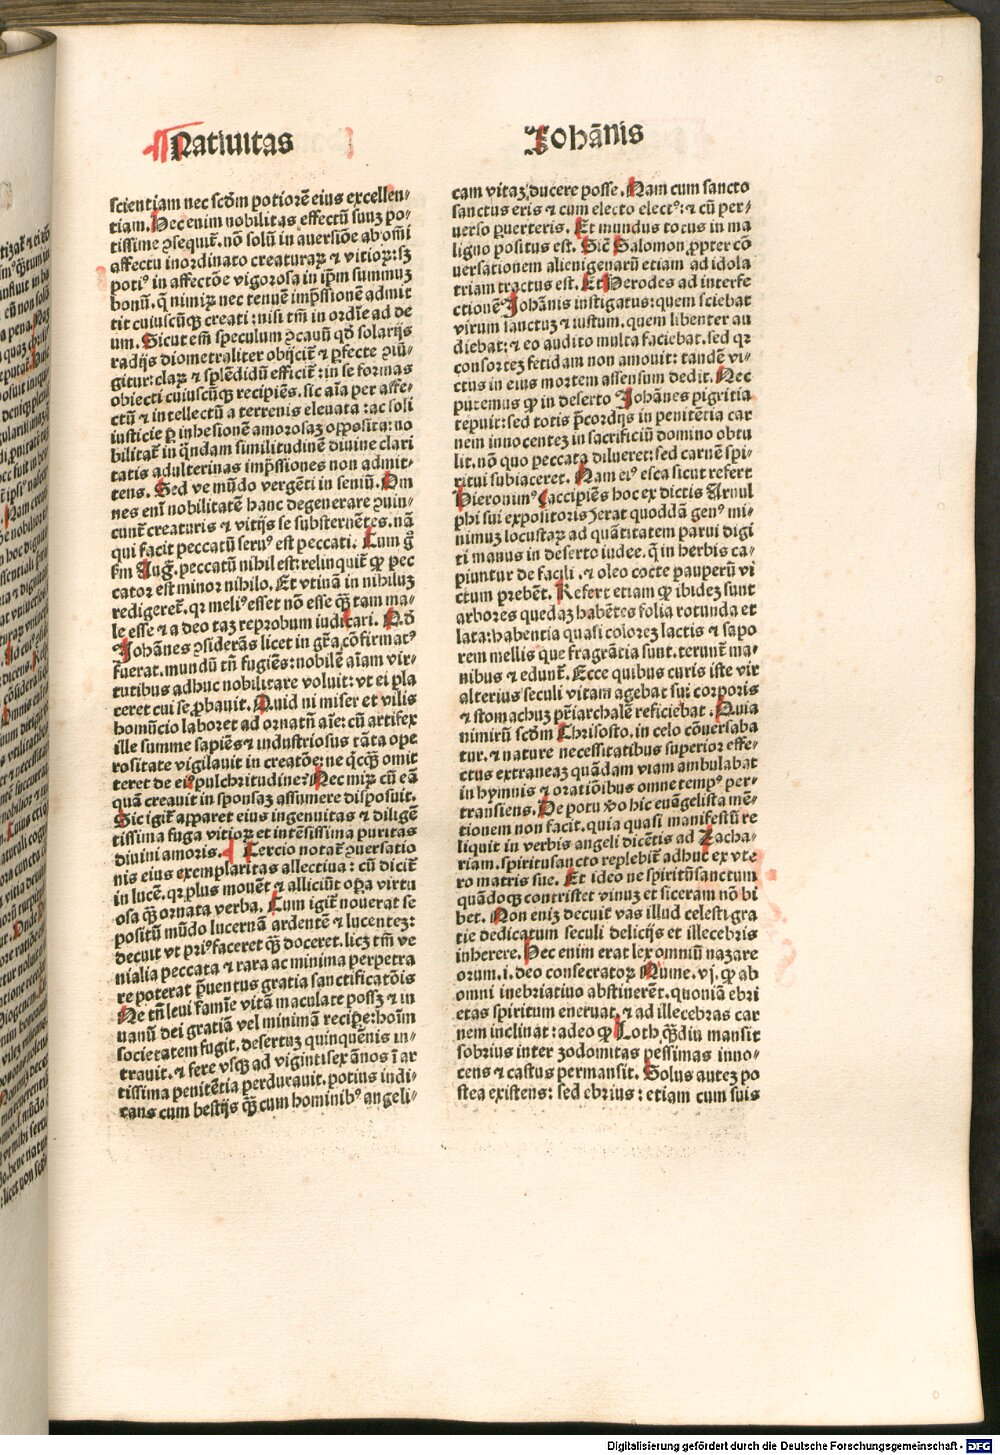 Natiuitas
Johānis
scientiam nec scd̄m potiorē eius excellen⸗
tiam. Hec enim nobilitas effectū suuȝ po⸗
tissime ꝯsequit̄. nō solū in auersiōe ab om̄i
affectu inordinato creaturaꝝ ⁊ vitioꝝ: sȝ
poti⁹ in affectōe vigorosa in ip̄m summuȝ
bonū. q̄ nimiꝝ nec tenuē imp̄ssionē admit
tit cuiuscūqꝫ creati: nisi tm̄ in ordīe ad de
um. Sicut em̄ speculum ꝯcauū qd̄ solarijs
radijs diometraliter obijcit̄ ⁊ ꝑfecte ꝯiū⸗
gitur: claꝝ ⁊ splēdidū efficit̄: in se formas
obiecti cuiuscūqꝫ recipiēs. sic aīa per affe⸗
ctū ⁊ intellectū a terrenis eleuata: ac soli
iusticie ꝑ inhesionē amorosaȝ opposita: no
bilitat̄ in q̄ndam similitudinē diuine clari
tatis adulterinas imp̄ssiones non admit⸗
tens. Sed ve mūdo vergēti in seniū. Om
nes enī nobilitatē hanc degenerare ꝯuin⸗
cunt̄ creaturis ⁊ vitijs se substernētes. nā
qui facit peccatū seru⁹ est peccati. Cum g̃
fm Aug̃. peccatū nihil est: relinquit̄ ꝙ pec
cator est minor nihilo. Et vtinā in nihiluȝ
redigeret̄. qr meli⁹ esset nō esse q̄ꝫ tam ma⸗
le esse ⁊ a deo taȝ reprobum iudicari. Qd̄
Johānes ꝯsiderās licet in gr̄a cōfirmat⁹
fuerat. mundū tn̄ fugiēs: nobilē aīam vir⸗
tutibus adhuc nobilitare voluit: vt ei pla
ceret cui se ꝓbauit. Quid ni miser et vilis
homūcio laboret ad ornatū aīe: cū artifex
ille summe sapiēs ⁊ industriosus tāta ope
rositate vigilauit in creatōe: ne q̄cqꝫ omit
teret de ei⁹ pulchritudine? Nec miꝝ cū eā
quā creauit in sponsaȝ assumere disposuit.
Sic igit̄ apparet eius ingenuitas ⁊ diligē
tissima fuga vitioꝝ et intēsissima puritas
diuini amoris. ¶ Tercio notat̄ ꝯuersatio
nis eius exemplaritas allectiua: cū dicit̄
in lucē. qr plus mouēt ⁊ alliciūt oꝑa virtu
osa q̄ꝫ ornata verba. Cum igit̄ nouerat se
positū mūdo lucernā ardentē ⁊ lucenteȝ:
decuit vt pri⁹ faceret q̄ꝫ doceret. licȝ tm̄ ve
nialia peccata ⁊ rara ac minima perpetra
re poterat p̄uentus gratia sanctificatōis
Ne tn̄ leui famīe vitā maculate possȝ ⁊ in
uanū dei gratiā vel minimā recipe: hoīm
societatem fugit. desertuȝ quinquēnis in⸗
trauit. ⁊ fere vsqꝫ ad vigintisex ānos ī ar
tissima penitētia perdurauit. potius indi⸗
tans cum bestijs q̄ꝫ cum hominib⁹ angeli⸗
cam vitaȝ ducere posse. Nam cum sancto
sanctus eris ⁊ cum electo elect⁹: ⁊ cū per⸗
uerso ꝑuerteris. Et mundus totus in ma
ligno positus est. Sic̄ Salomon ꝓpter cō
uersationem alienigenarū etiam ad idola
triam tractus est. Et Herodes ad interfe
ctionē Johānis instigatus: quem sciebat
virum sanctuȝ ⁊ iustum. quem libenter au
diebat: ⁊ eo audito multa faciebat. sed qr
consorteȝ fetidam non amouit: tandē vi⸗
ctus in eius mortem assensum dedit. Nec
putemus ꝙ in deserto Johānes pigritia
tepuit: sed totis p̄cordijs in penitētia car
nem innocenteȝ in sacrificiū domino obtu
lit. nō quo peccata dilueret: sed carnē spi⸗
ritui subiaceret. Nam ei⁹ esca sicut refert
Hieronim⁹ (accipiēs hoc ex dictis Arnul
phi sui expositoris) erat quoddā gen⁹ mi⸗
nimuȝ locustaꝝ ad quātitatem parui digi
ti manus in deserto iudee. q̄ in herbis ca⸗
piuntur de facili. ⁊ oleo cocte pauperū vi
ctum prebēt. Refert etiam ꝙ ibideȝ sunt
arbores quedaȝ habētes folia rotunda et
lata: habentia quasi coloreȝ lactis ⁊ sapo
rem mellis que fragrātia sunt. terunt̄ ma⸗
nibus ⁊ edunt̄. Ecce quibus curis iste vir
alterius seculi vitam agebat sui corporis
⁊ stomachuȝ pr̄iarchalē reficiebat. Quia
nimirū scd̄m Chrisosto. in celo cōuersaba
tur. ⁊ nature necessitatibus superior effe⸗
ctus extraneaȝ quādam viam ambulabat
in hymnis ⁊ oratiōibus omne temp⁹ per⸗
transiens. De potu ꝟo hic euāgelista mē⸗
tionem non facit. quia quasi manifestū re
liquit in verbis angeli dicētis ad Zacha⸗
riam. spiritusancto replebit̄ adhuc ex vte
ro matris sue. Et ideo ne spiritūsanctum
quādoqꝫ contristet vinuȝ et siceram nō bi
bet. Non eniȝ decuit vas illud celesti gra
tie dedicatum seculi delicijs et illecebris
inherere. Hec enim erat lex omniū naȝare
orum. i. deo consecratoꝝ Nume. vj. ꝙ ab
omni inebriatiuo abstinerēt. quoniā ebri
etas spiritum eneruat. ⁊ ad illecebras car
nem inclinat: adeo ꝙ Loth q̄ꝫdiu mansit
sobrius inter zodomitas pessimas inno⸗
cens ⁊ castus permansit. Solus auteȝ po
stea existens: sed ebrius: etiam cum suis
Digitalisierung gefördert durch die Deutsche Forschungsgemeinschaft - DFG